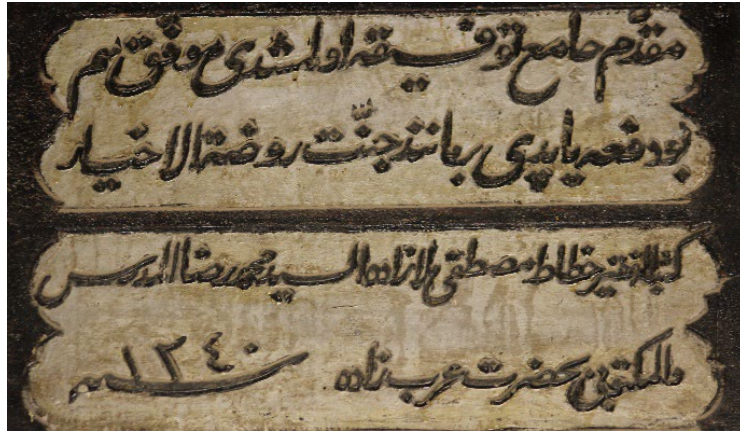 مقدّم جامع توفيقه اولمشدى موفّق هم
بو دفعه ياپدى بر مانند جنّت روضة الاخيار
كتبه الفقير خطاط مصطفى ملازاده السيد محمد رضا المدرس
والمكتوبى بحضرت عرب زاده سنه ١٢٤٠